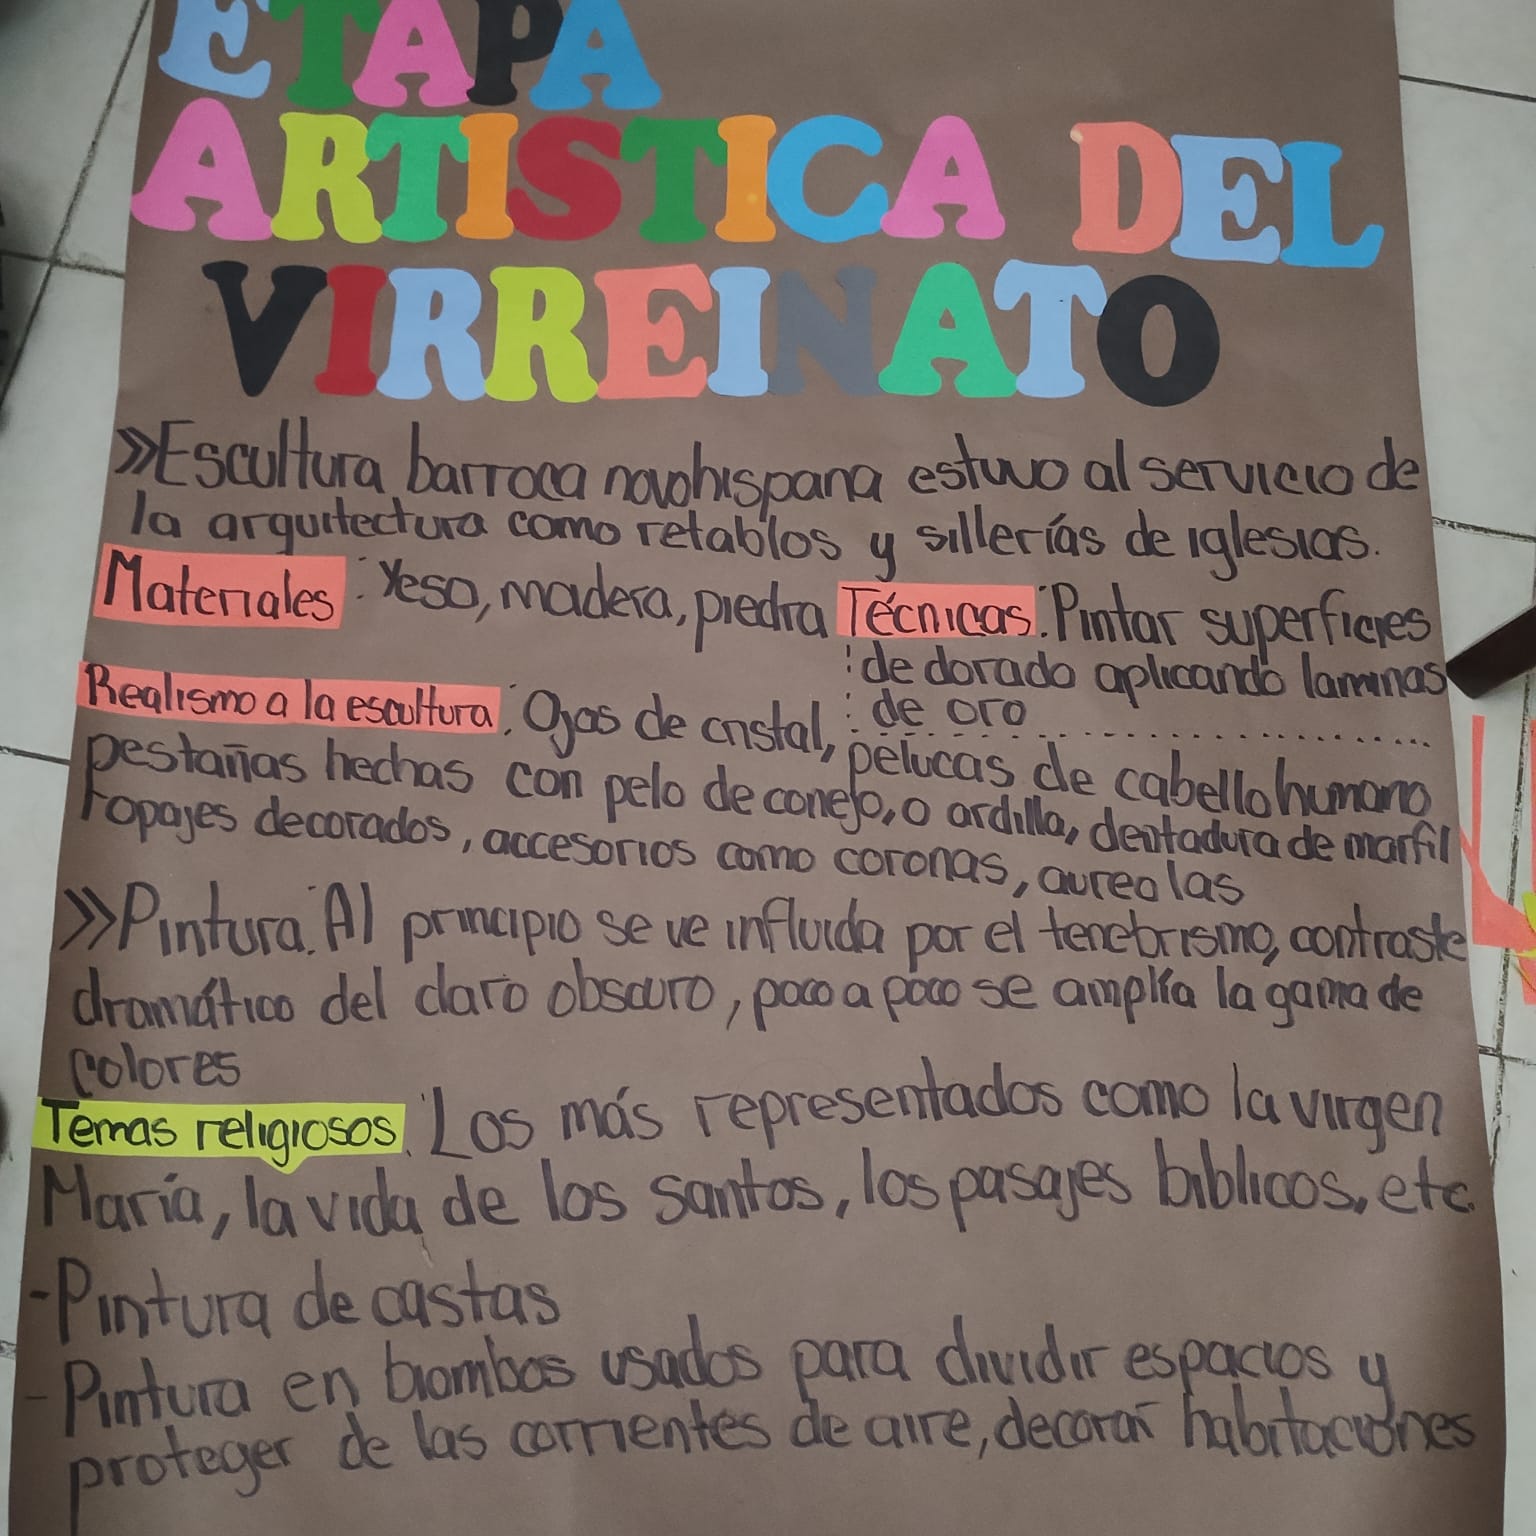 ETAPA
ARTISTICA DEL
VIRREINATO
»Escultura barroca novohispana estuvo al servicio de
la arquitectura como retablos y sillerías de iglesias.
Materiales: Yeso, madera, piedra Técnicas: Pintar superficies
de dorado aplicando laminas
de oro
Realismo a la escultura: Ojos de cristal, pelucas de cabello humano
pestañas hechas con pelo de conejo, o ardilla, dentadura de marfil
ropajes decorados, accesorios como coronas, aureolas
»Pintura: Al principio se ve influida por el tenebrismo, contraste
dramático del claro obscuro, poco a poco se amplía la gama de
colores
Temas religiosos: Los más representados como la virgen
María, la vida de los santos, los pasajes bíblicos, etc.
-Pintura de castas
-Pintura en biombos usados para dividir espacios y
proteger de las corrientes de aire, decorar habitaciones